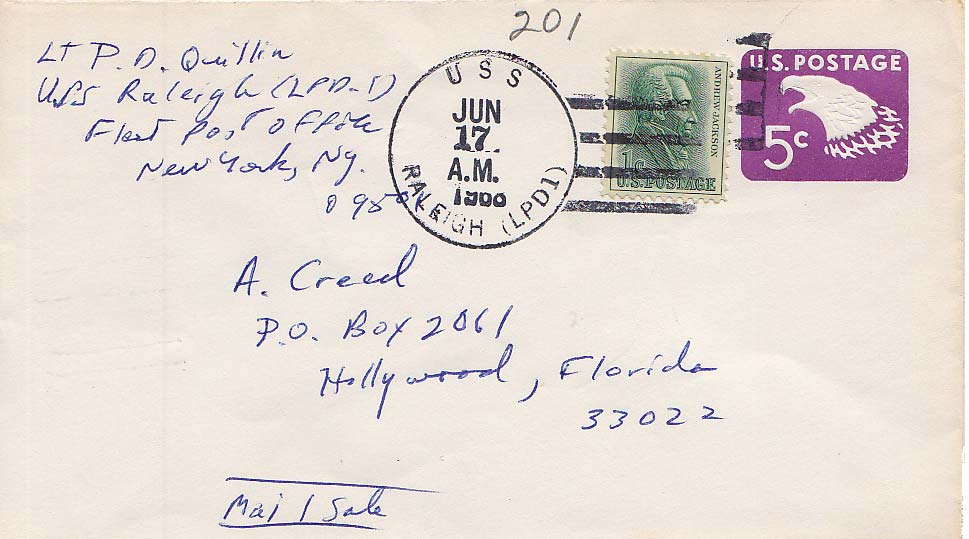 201
Lt P. D. Quillin
USS Raleigh (LPD-1)
Fleet Post Office
New York, Ny.
USS
JUN
17
A.M.
RALEIGH (LPD1)
ANDREW JACKSON
1c
U.S. POSTAGE
U.S. POSTAGE
5c
A. Creed
P.O. Box 2061
Hollywood, Florida
33022
Mail Sale